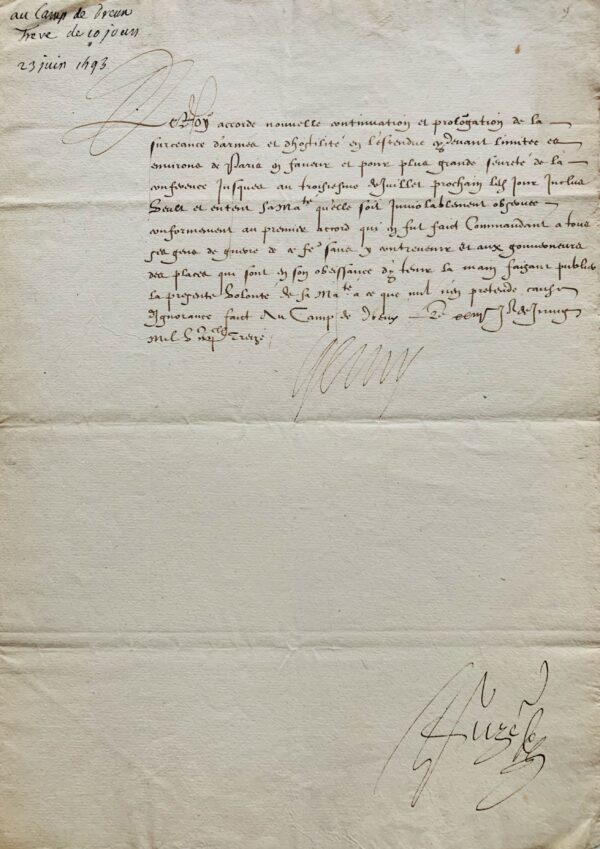 au Camp de Dreux
Trêve de 10 jours
23 juin 1593
Le Roy accorde nouvelle continuation et prolongation de la
surceance darmes et dhostilité en lestendue cy devant limitee es
environs de Paris en faveur et pour plus grande seureté de la
conference Jusques au troisiesme de Juillet prochain led Jour Inclus
Veult et entent sa Ma.te quelle soit Inviolablement observee
conformement au premier accord qui en fut faict Commandant a tous
ses gens de guerre de ny contrevenir Et aux gouverneurs
des places qui sont en son obeissance dy tenir la main faisant publier
la presente Volonté de sa Ma.te a ce que nul nen pretende cause
dignorance faict Au Camp de dreux Le xxiij J.r de Juing
Mil V cc iiij.xx Treize
Henry
Ruzé